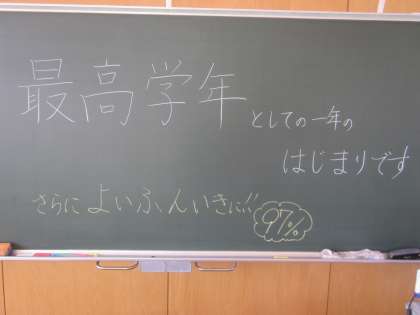 最高学年としての一年の
はじまりです
さらによいふんいきに!!
97%